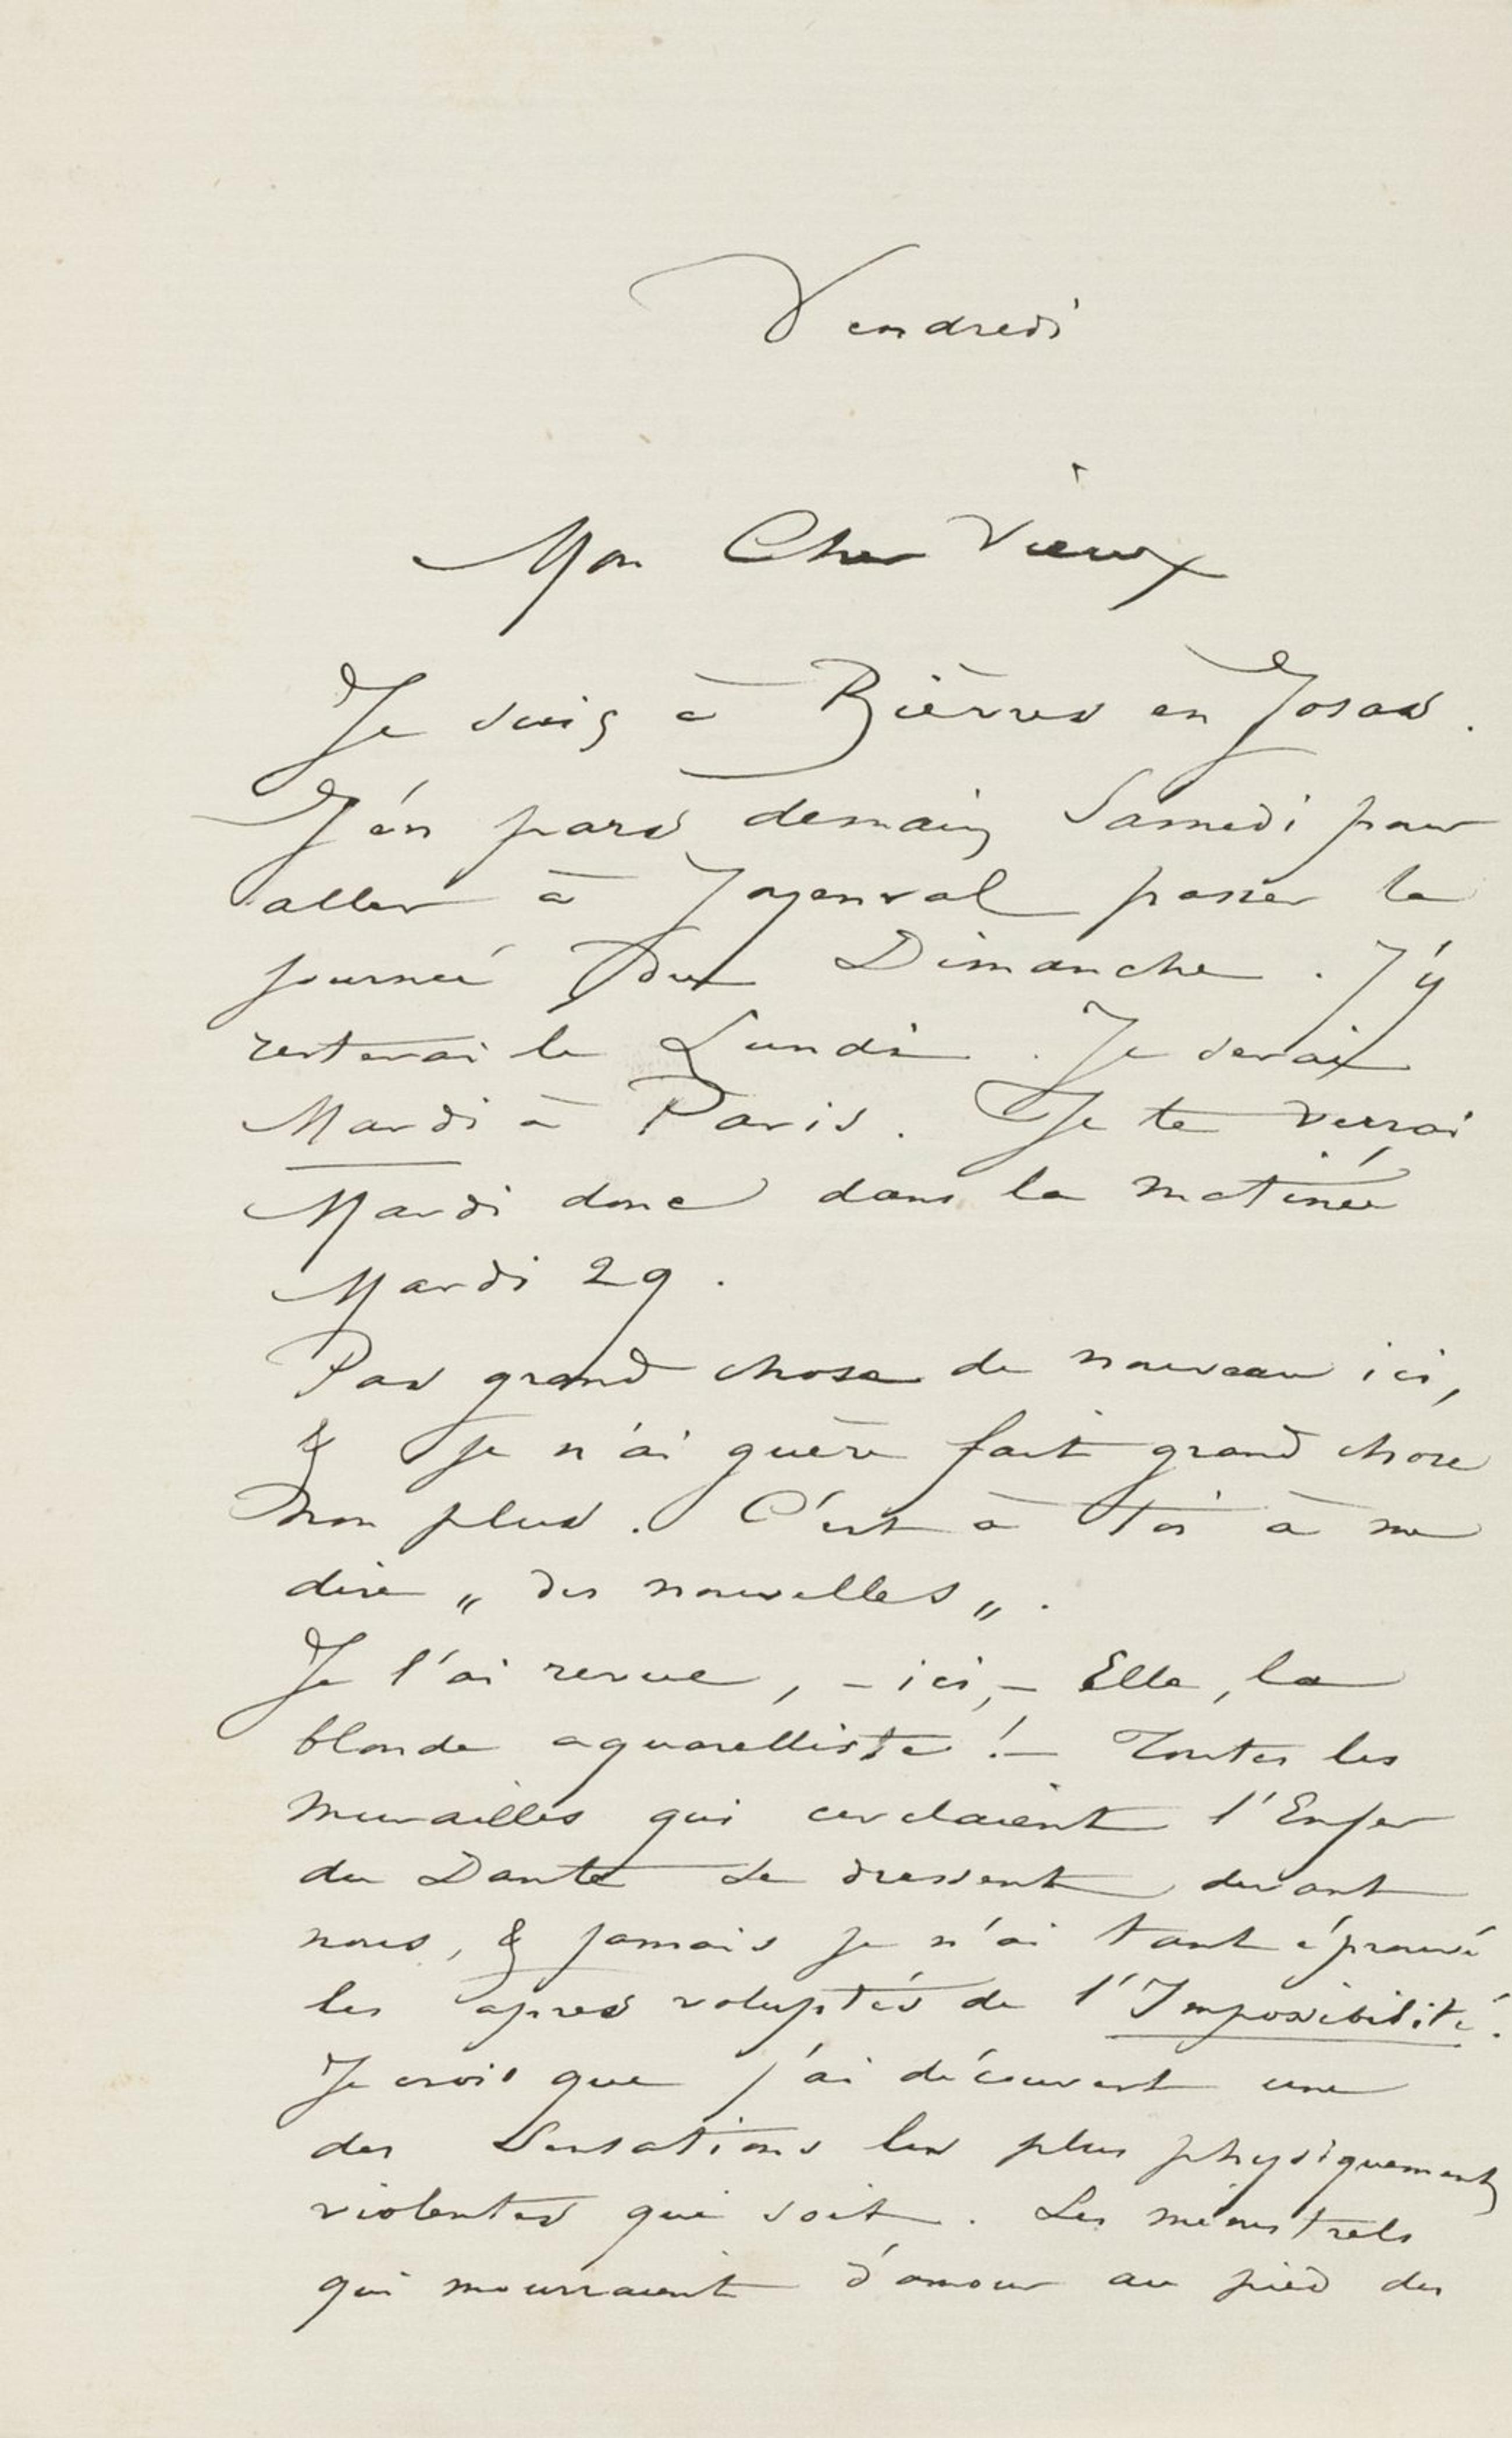 Vendredi
Mon Cher Vieux
Je suis à Bièvres en Josas.
J'en pars demain Samedi pour
aller à Joyenval passer la
journée du Dimanche. J'y
resterai le Lundi. Je serai
Mardi à Paris. Je te verrai
Mardi donc dans la matinée
Mardi 29.
Pas grand chose de nouveau ici,
& je n'ai guère fait grand chose
non plus. C'est à toi à me
dire „ des nouvelles „.
Je l'ai revue, – ici, – Elle, la
blonde aquarelliste ! – Toutes les
murailles qui cerclaient l'Enfer
du Dante se dressent devant
nous, & jamais je n'ai tant éprouvé
les apres voluptés de l'Impossibilité.
Je crois que j'ai découvert une
des Sensations les plus physiquement
violentes qui soit. Les ménestrels
qui mourraient d'amour au pied des